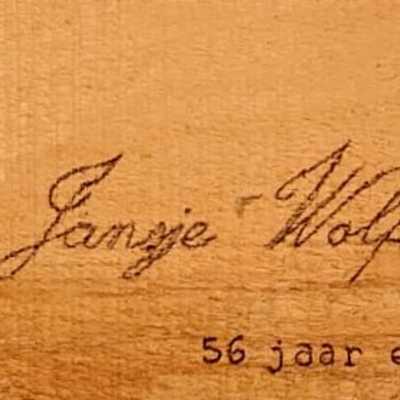 Jansje Wolf
56 jaar e